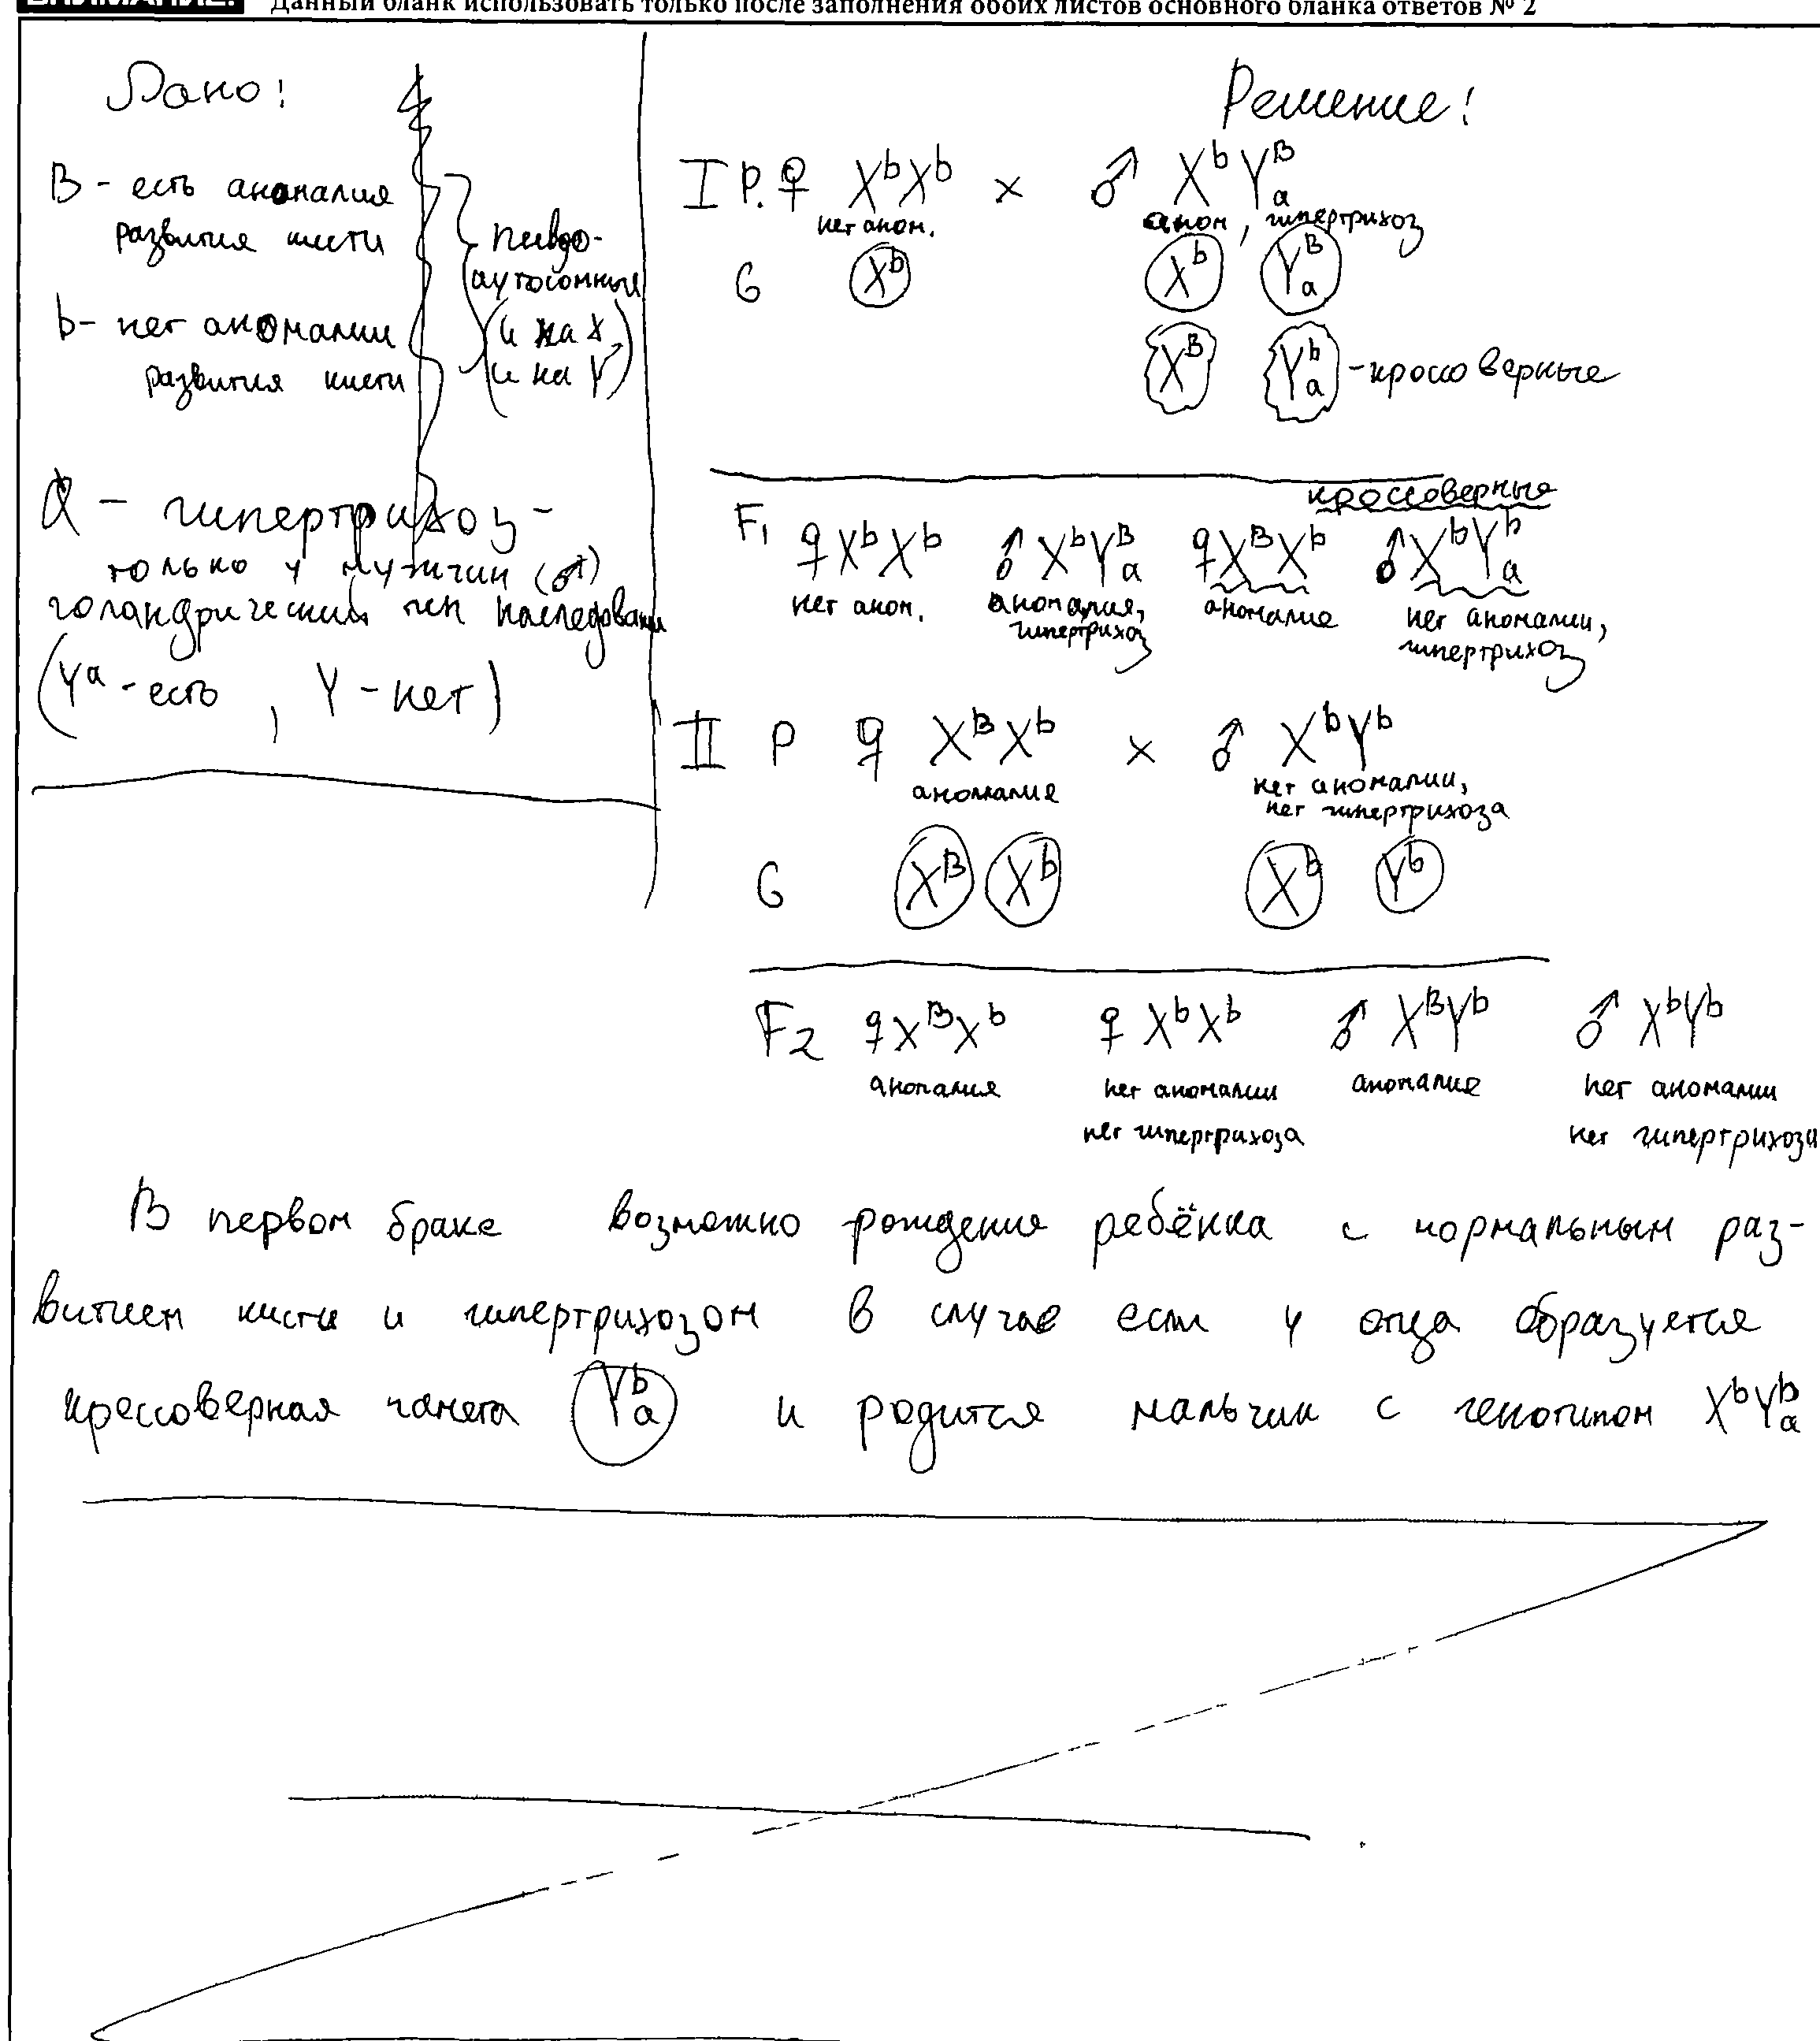 ВНИМАНИЕ! Данный бланк использовать только после заполнения обоих листов основного бланка ответов № 2
Дано!
B - есть аномалия
развития кисти
b - нет аномалии
развития кисти
псевдо-
аутосомные
(и на X
и на Y)
a - гипертрихоз -
только у мужчин (♂)
голандрический тип наследования
(Yᵃ - есть , Y - нет)
Решение!
I P. ♀ XᵇXᵇ × ♂ XᵇYᴮₐ
нет аном. аном, гипертрихоз
G Xᵇ Xᵇ Yᴮₐ
Xᴮ Yᵇₐ - кроссоверные
кроссоверные
F₁ ♀XᵇXᵇ ♂XᵇYᴮₐ ♀XᴮXᵇ ♂XᵇYᵇₐ
нет аном. аномалия, аномалие нет аномалии,
гипертрихоз гипертрихоз
II P ♀ XᴮXᵇ × ♂ XᵇYᵇ
аномалие нет аномалии,
нет гипертрихоза
G Xᴮ Xᵇ Xᵇ Yᵇ
F₂ ♀XᴮXᵇ ♀ XᵇXᵇ ♂ XᴮYᵇ ♂ XᵇYᵇ
аномалия нет аномалии аномалие нет аномалии
нет гипертрихоза нет гипертрихоза
В первом браке возможно рождения ребёнка с нормальным раз-
витием кисти и гипертрихозом в случае если у отца образуется
кроссоверная гамета Yᵇₐ и родится мальчик с генотипом XᵇYᵇₐ